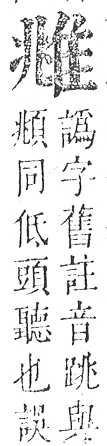 譌字舊註音跳與
頫同低頭聽也誤